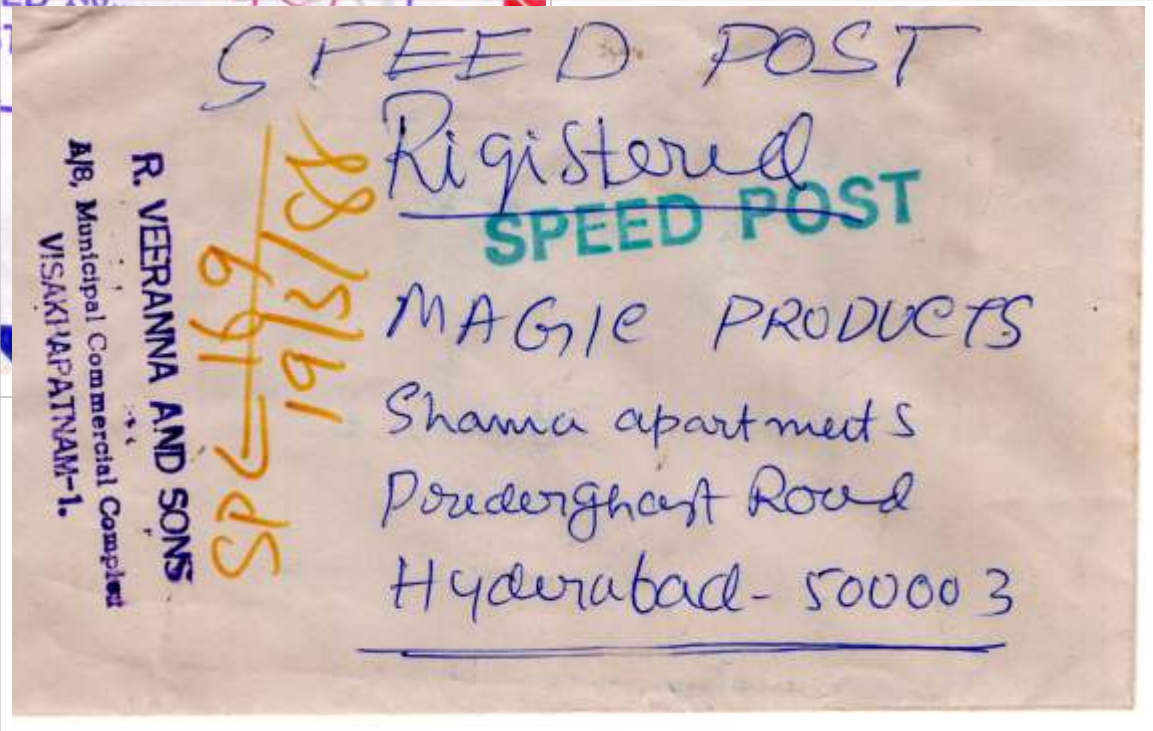 SPEED POST
Rigistered
SPEED POST
MAGIC PRODUCTS
Shama apartmets
Road
Hyderabad - 500003
R. VEERANNA AND SONS
A/8, Municipal Commercial Complex
VISAKHAPATNAM-1.